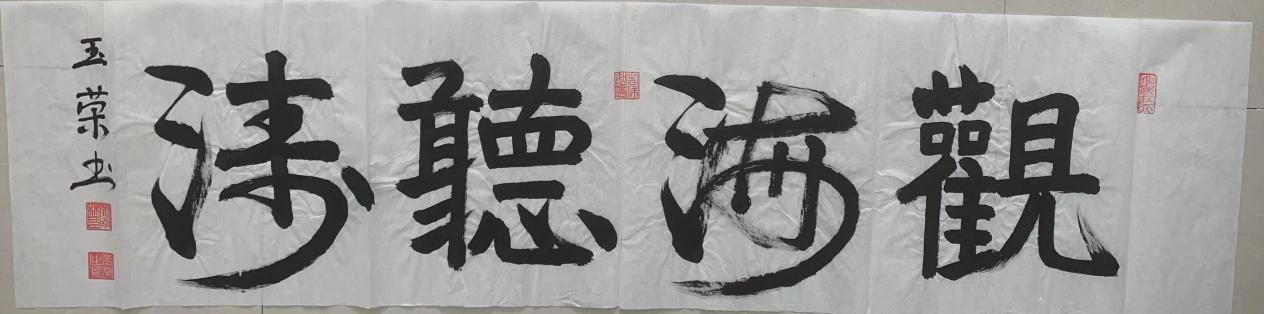 觀海聽涛
玉荣书